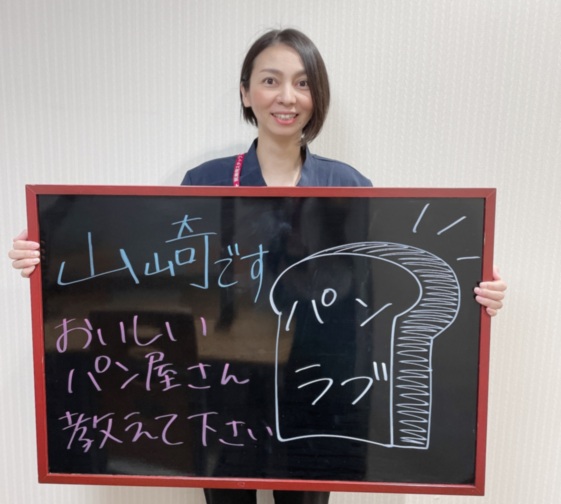 山崎です
おいしい
パン屋さん
教えて下さい
パン
ラブ